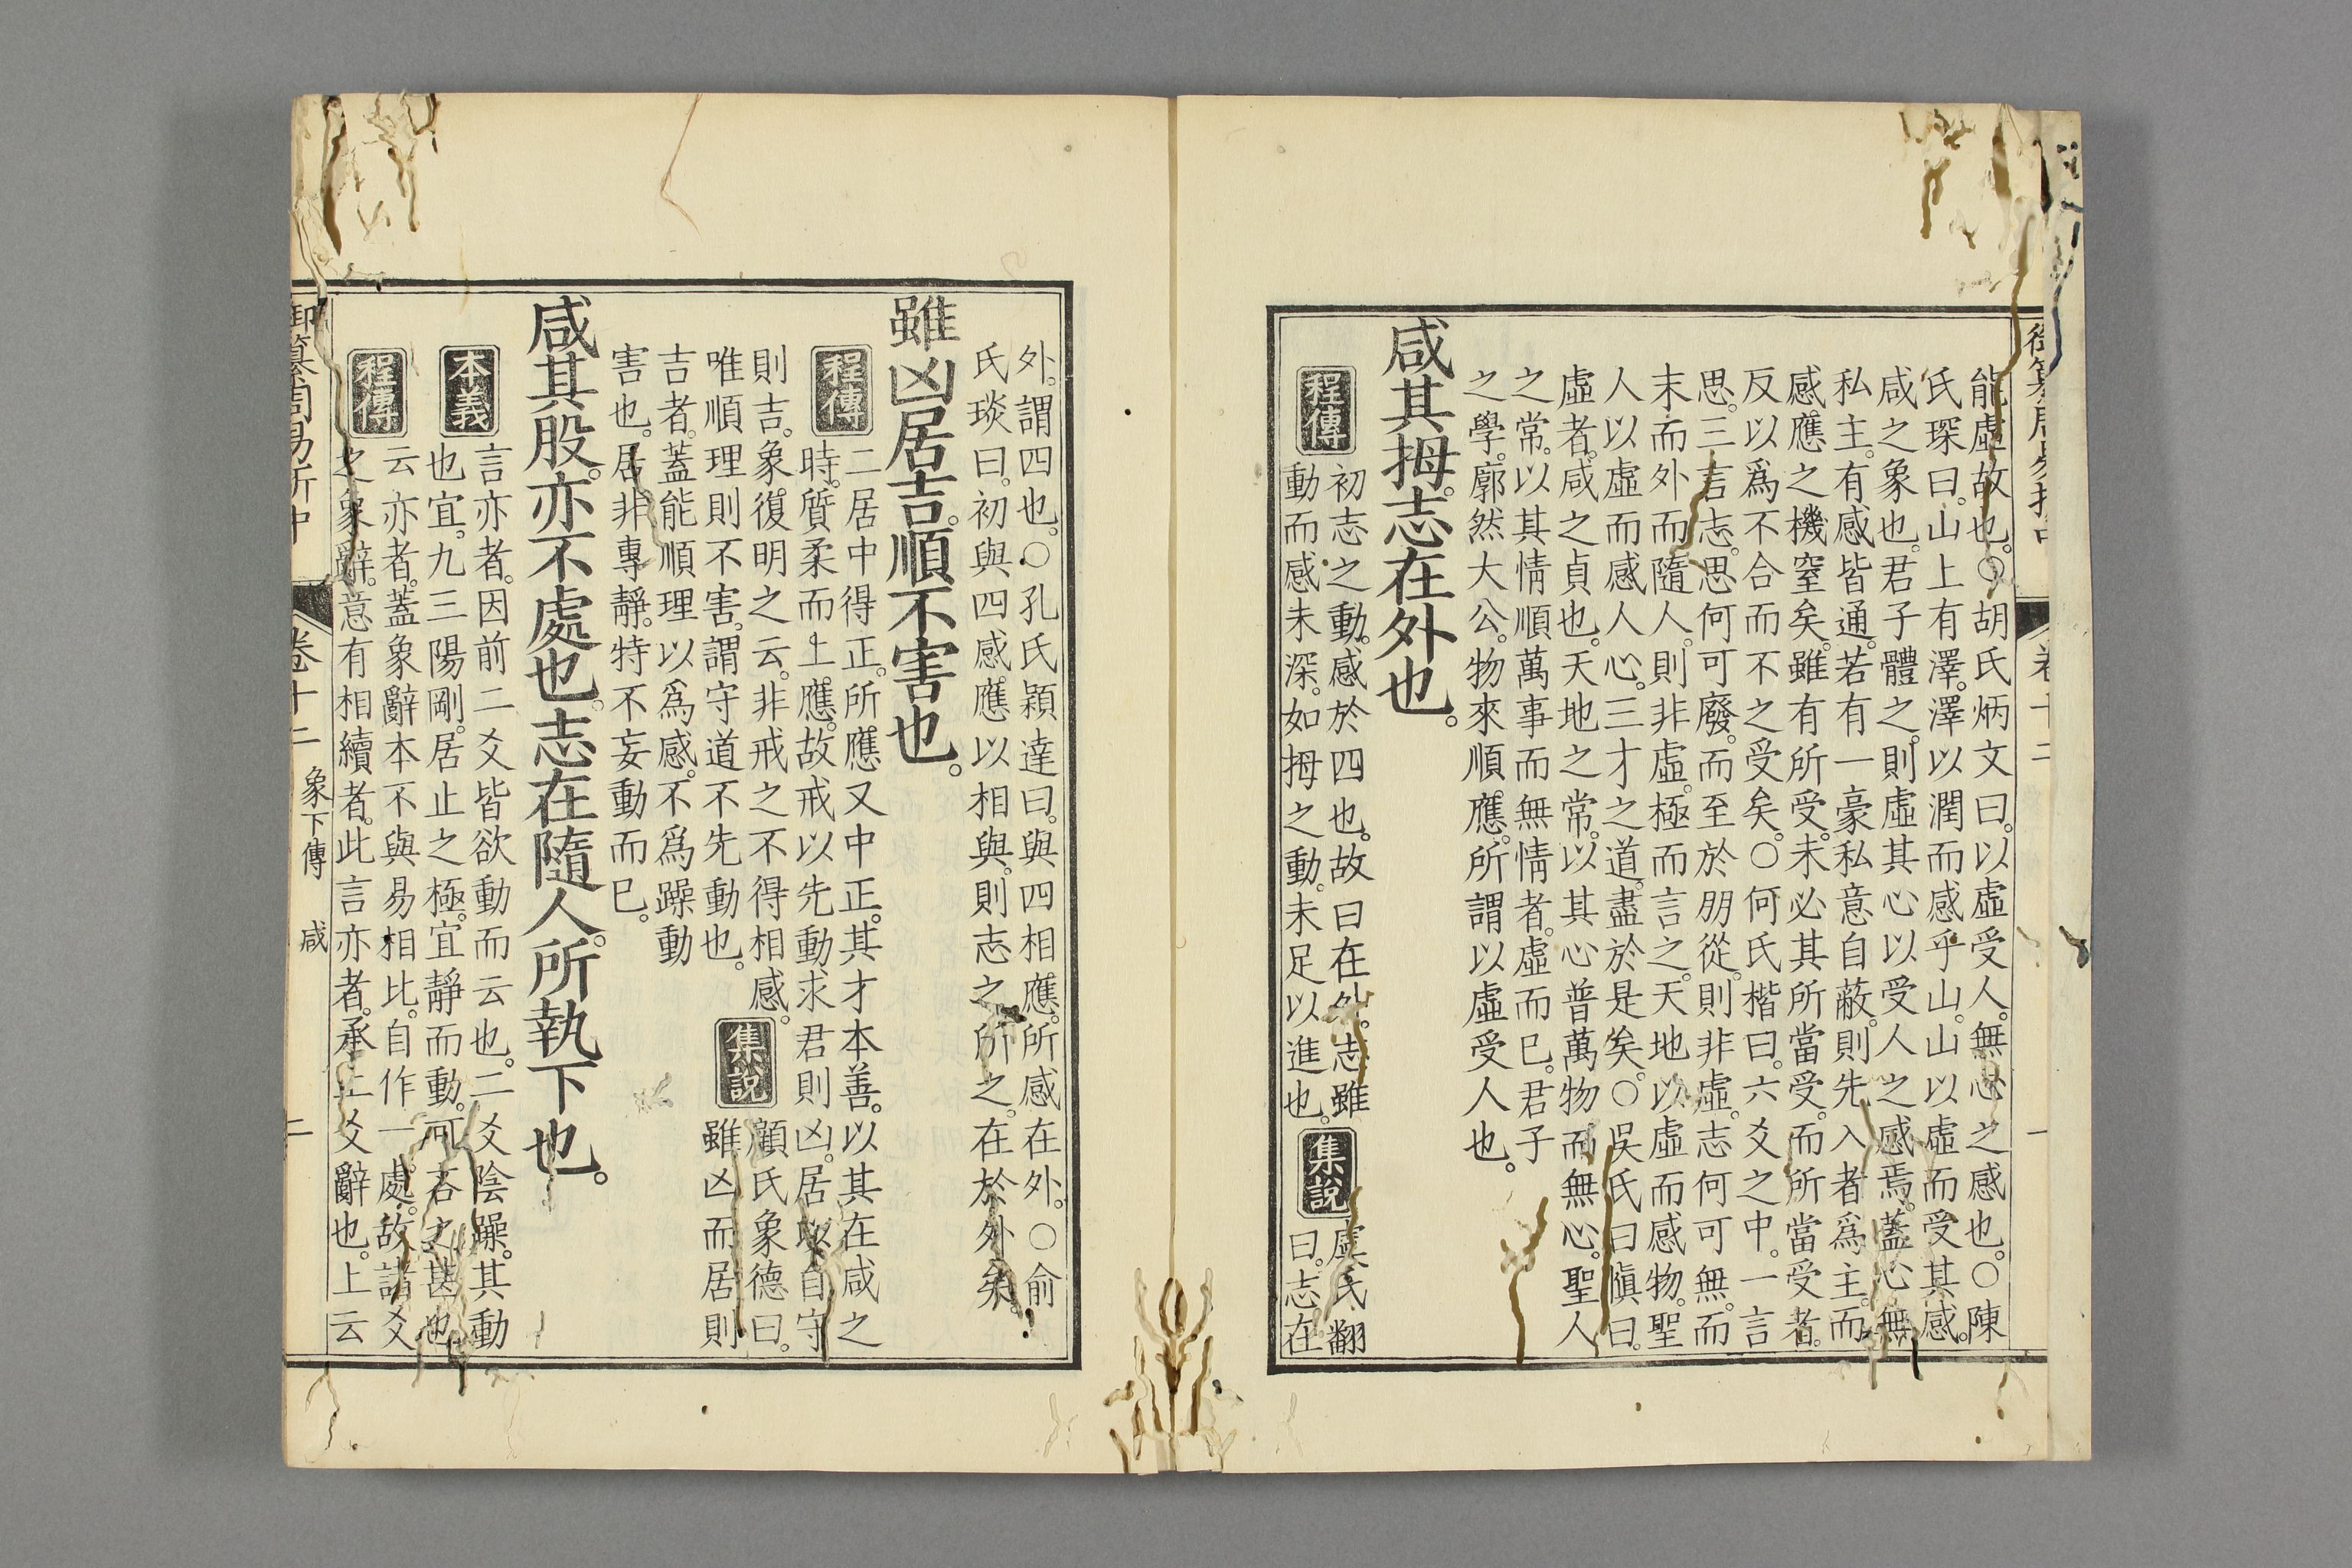 能虛故也。○胡氏炳文曰。以虛受人。無心之感也。○陳
氏琛曰。山上有澤。澤以潤而感乎山。山以虛而受其感。
咸之象也。君子體之。則虛其心以受人之感焉。蓋心無
私主。有感皆通。若有一豪私意自蔽。則先入者爲主。而
感應之機窒矣。雖有所受。未必其所當受。而所當受者。
反以爲不合而不之受矣。○何氏楷曰。六爻之中。一言
思。三言志。思何可廢。而至於朋從。則非虛。志何可無。而
末而外而隨人。則非虛。極而言之。天地以虛而感物。聖
人以虛而感人心。三才之道。盡於是矣。○吳氏曰愼曰。
虛者。咸之貞也。天地之常。以其心普萬物而無心。聖人
之常。以其情順萬事而無情者。虛而已。君子
之學。廓然大公。物來順應。所謂以虛受人也。
咸其拇。志在外也。
程傳
初志之動。感於四也。故曰在外。志雖
動而感未深。如拇之動。未足以進也。
集說
虞氏翻
曰。志在
外。謂四也。○孔氏穎達曰。與四相應。所感在外。○俞
氏琰曰。初與四感應以相與。則志之所之。在於外矣。
雖凶居吉。順不害也。
程傳
二居中得正。所應又中正。其才本善。以其在咸之
時。質柔而上應。故戒以先動求君則凶。居以自守
則吉。象復明之云。非戒之不得相感。
唯順理則不害。謂守道不先動也。
集說
顧氏象德曰。
雖凶而居則
吉者。蓋能順理以爲感。不爲躁動
害也。居非專靜。特不妄動而已。
咸其股。亦不處也。志在隨人。所執下也。
本義
言亦者。因前二爻皆欲動而云也。二爻陰躁。其動
也宜。九三陽剛。居止之極。宜靜而動。可吝之甚也
程傳
云亦者。蓋象辭本不與易相比。自作一處。故諸爻
之象辭。意有相續者。此言亦者。承上爻辭也。上云
御纂周易折中
卷十二
象下傳
咸
二